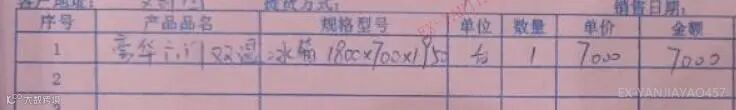 客户地址： 提货方式： 销售日期：
序号 产品品名 规格型号 单位 数量 单价 金额
1 豪华六门双温冰箱 1800×700×1950 台 1 7000 7000
2
EX-YANJIAYAO457
大数跨境